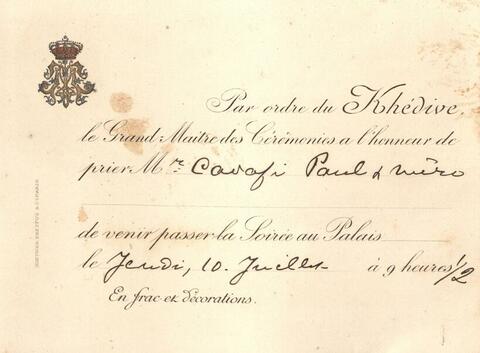 Par ordre du Khédive,
le Grand Maître des Cérémonies a l'honneur de
prier M.r Cavafi Paul & mère
de venir passer la Soirée au Palais
le Jeudi, 10. Juillet à 9 heures 1/2
En frac et décorations.